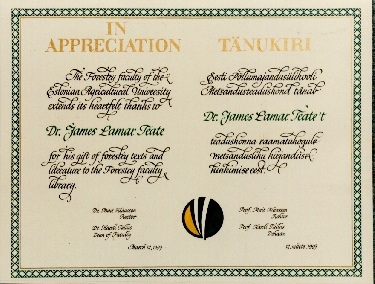 IN
APPRECIATION
The Forestry faculty of the
Estonian Agricultural University
extends its heartfelt thanks to
Dr. James Lamar Teate
for his gift of forestry texts and
literature to the Forestry faculty
library.
Rector
Dean of Faculty
TÄNUKIRI
Eesti Põllumajandusülikooli
Metsandusteaduskond tänab
Dr. James Lamar Teate't
teaduskonna raamatukogule
metsandusliku kirjanduse
kinkimise eest.
Rektor
Dekaan